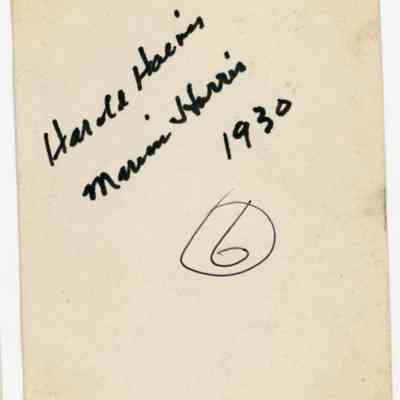 Harold Harris
Marvin Harris
1930
6